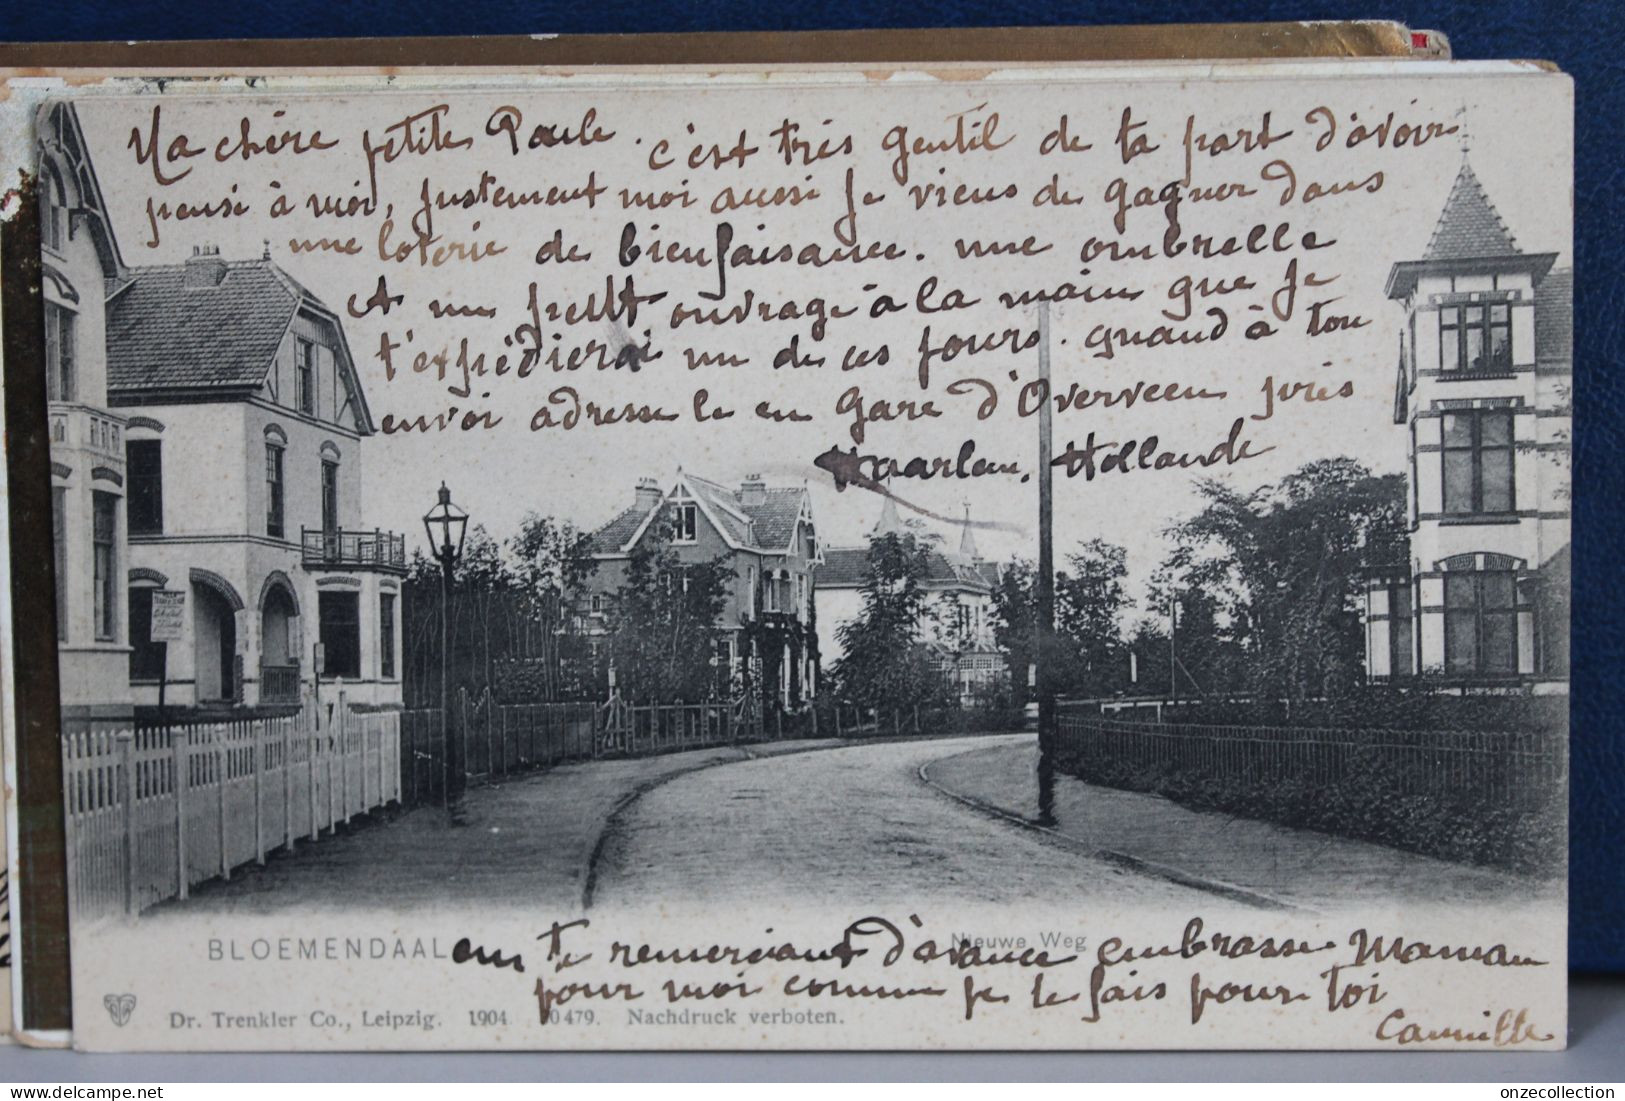 Ma chère petite Paule. c'est très gentil de ta part d'avoir
pensé à moi, justement moi aussi je viens de gagner dans
une loterie de bienfaisance. une ombrelle
et un petit ouvrage à la main que je
t'expédierai un de ces jours. quand à ton
envoi adresse le en gare d'Overveen près
Haarlem. Hollande
BLOEMENDAAL
Nieuwe Weg
en te remerciant d'avance embrasse Maman
pour moi comme je le fais pour toi
Camille
Dr. Trenkler Co., Leipzig. 1904 0479. Nachdruck verboten.
onzecollection